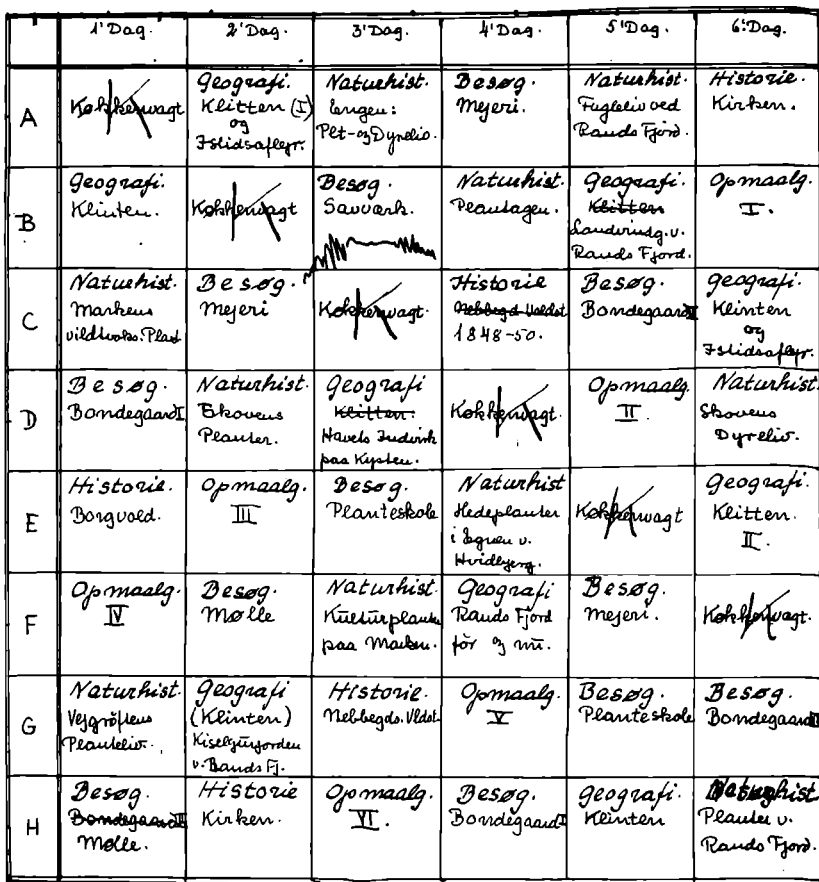 1' Dag. 2' Dag. 3' Dag. 4' Dag. 5' Dag. 6' Dag.
A
Køkkenvagt
Geografi.
Klitten (I)
og
Istidsaflejr.
Naturhist.
Engen:
Plt- og Dyreliv.
Besøg.
Mejeri.
Naturhist.
Fugleliv ved
Rands Fjord.
Historie.
Kirken.
B
Geografi.
Klinten.
Køkkenvagt
Besøg.
Savværk.
Naturhist.
Plantagen.
Geografi.
Klitten
Landvindg. v.
Rands Fjord.
Opmaalg.
I.
C
Naturhist.
Markens
vildtvoks. Plant
Besøg.
Mejeri
Køkkenvagt.
Historie
Nebbegd. Voldst
1848-50.
Besøg.
Bondegaard
Geografi.
Klinten
og
Istidsaflejr.
D
Besøg.
Bondegaard I
Naturhist.
Skovens
Planter.
Geografi
Klitten.
Havets Indvirk
paa Kysten.
Køkkenvagt.
Opmaalg.
II.
Naturhist.
Skovens
Dyreliv.
E
Historie.
Borgvold.
Opmaalg.
III
Besøg.
Planteskole
Naturhist
Hedeplanter
i Egnen v.
Hvidbjerg.
Køkkenvagt
Geografi.
Klitten.
II.
F
Opmaalg.
IV
Besøg.
Mølle
Naturhist.
Kulturplanter
paa Marken.
Geografi
Rands Fjord
før og nu.
Besøg.
Mejeri.
Køkkenvagt.
G
Naturhist.
Vejgrøftens
Planteliv.
Geografi
(Klinten)
Kiselgurjorden
v. Rands Fj.
Historie.
Nebbegds. Vldst.
Opmaalg.
V
Besøg.
Planteskole
Besøg.
Bondegaard
H
Besøg.
Bondegaard II
Mølle.
Historie
Kirken.
Opmaalg.
VI.
Besøg.
Bondegaard I
Geografi.
Klinten
Naturhist
Planter v.
Rands Fjord.